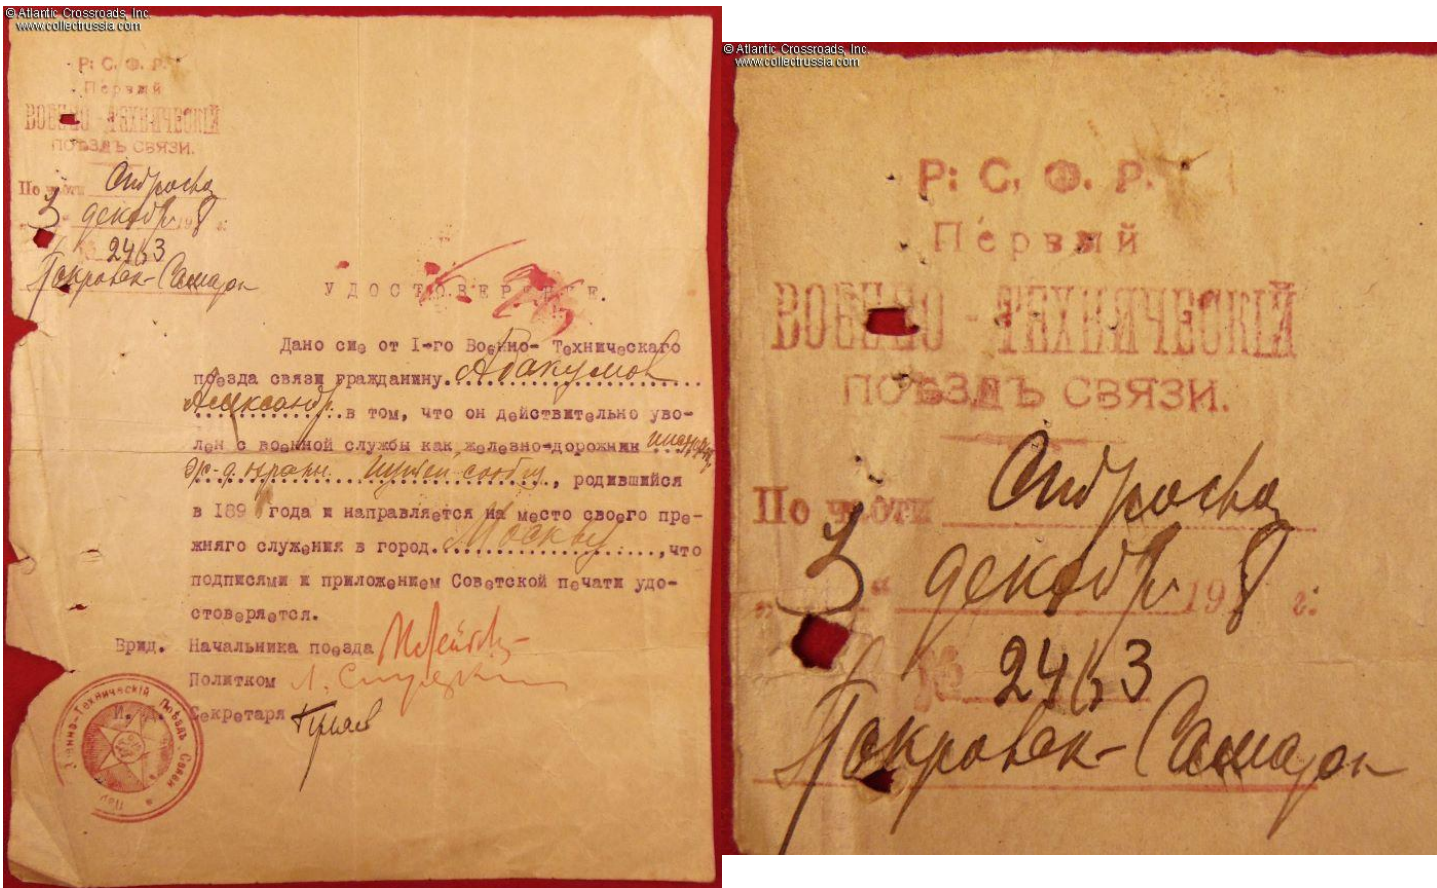 © Atlantic Crossroads, Inc.
www.collectrussia.com
Р. С. Ф. Р.
Первый
ВОЕННО-ТЕХНИЧЕСКІЙ
ПОѢЗДЪ СВЯЗИ.
По части
3 декабр 1918 г.
№ 2463
Покровск-Самара
УДОСТОВЕРЕНИЕ.
Дано сие от I-го Военно-Техническаго
поезда связи гражданину Абакумов
Александр в том, что он действительно уво-
лен с военной службы как железно-дорожник
, родившийся
в 189 года и направляется на место своего пре-
жняго служения в город Москву, что
подписями и приложением Советской печати удо-
стоверяется.
Врид. Начальника поезда
Политком
И. Д. Секретаря
Военно-Техническій Поѣздъ Связи
© Atlantic Crossroads, Inc.
www.collectrussia.com
Р. С. Ф. Р.
Первый
ВОЕННО-ТЕХНИЧЕСКІЙ
ПОѢЗДЪ СВЯЗИ.
По части
„3" декабр 1918 г.
№ 2463
Покровск-Самара